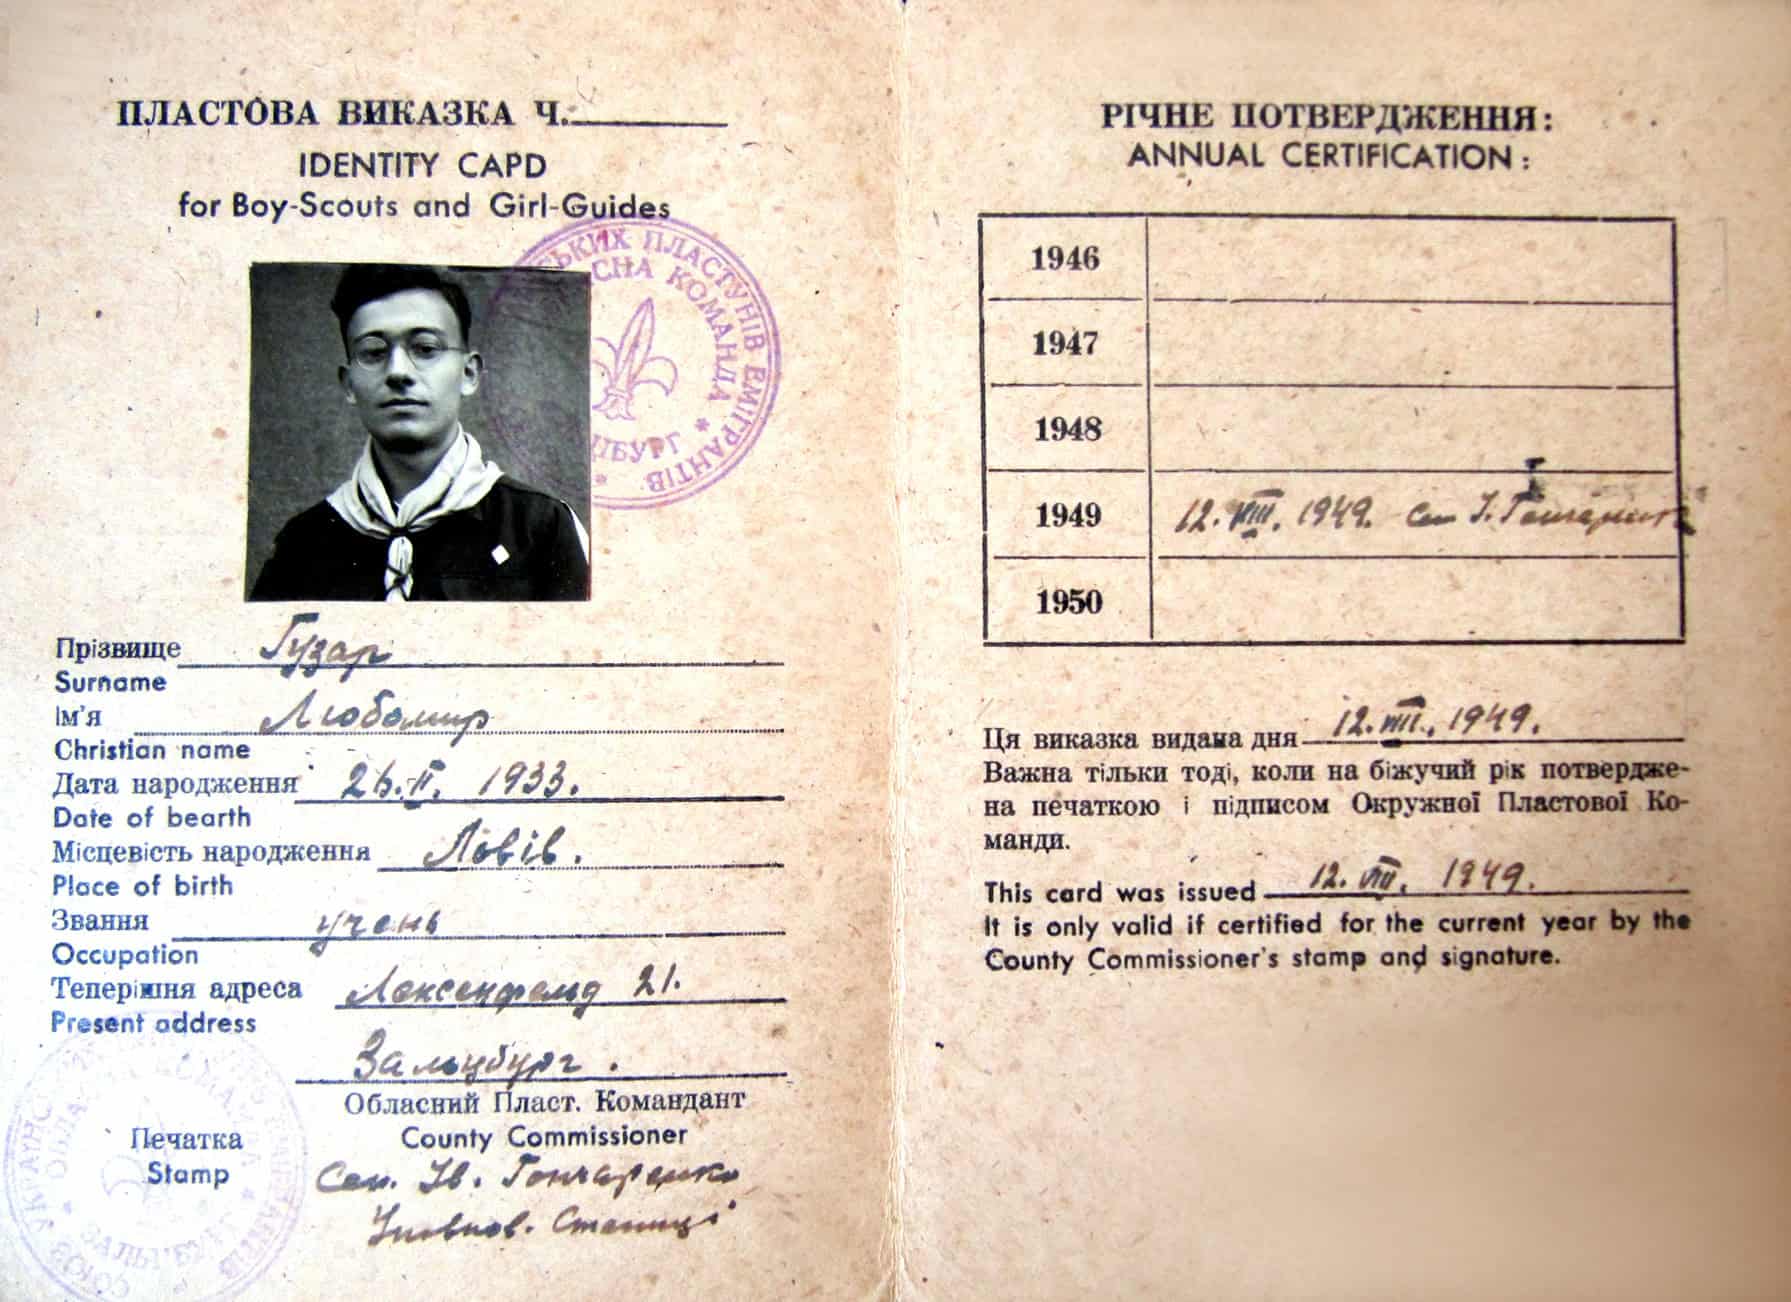 ПЛАСТОВА ВИКАЗКА Ч.
IDENTITY CAPD
for Boy-Scouts and Girl-Guides
СЬКИХ ПЛАСТУНІВ ЕМІГРАНТІВ
СНА КОМАНДА
ЦБУРГ
Прізвище Гузар
Surname
Ім'я Любомир
Christian name
Дата народження 26. II. 1933.
Date of bearth
Місцевість народження Львів.
Place of birth
Звання учень
Occupation
Теперішня адреса Лексенфельд 21.
Present address
Зальцбург.
Обласний Пласт. Командант
Печатка
County Commissioner
Stamp
Сен. Ів. Гончаренко
Уповнов. Станиці
РІЧНЕ ПОТВЕРДЖЕННЯ:
ANNUAL CERTIFICATION:
1946
1947
1948
1949 12. VIII. 1949. сен І. Гончаренко
1950
Ця виказка видана дня 12. VIII. 1949.
Важна тільки тоді, коли на біжучий рік потвердже-
на печаткою і підписом Окружної Пластової Ко-
манди.
This card was issued 12. VIII. 1949.
It is only valid if certified for the current year by the
County Commissioner's stamp and signature.